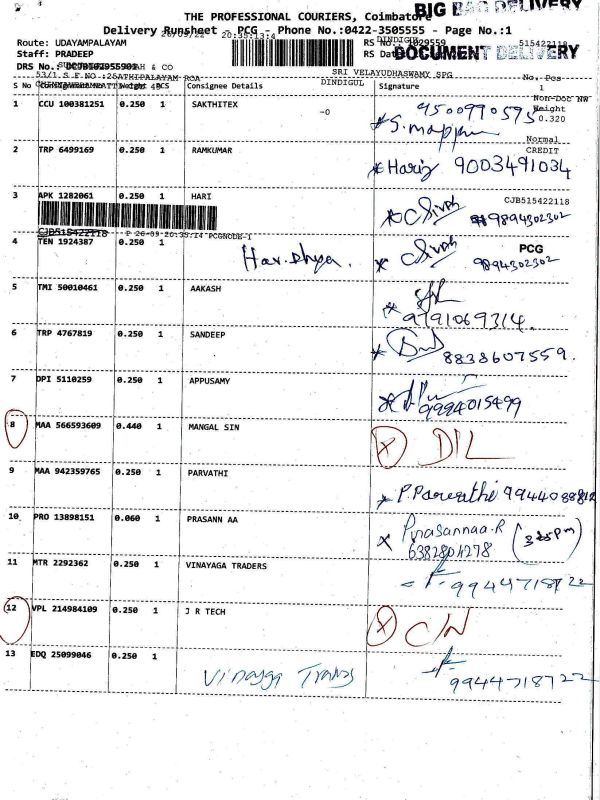 BIG BAG DELIVERY
THE PROFESSIONAL COURIERS, Coimbatore
Delivery Runsheet - PCG - Phone No.:0422-3505555 - Page No.:1
Route: UDAYAMPALAYAM
515422118
Staff: PRADEEP
DOCUMENT DELIVERY
SRI VELAYUDHASWAMY SPG
DINDIGUL
S No Weight PCS Consignee Details Signature
1 CCU 100381251 0.250 1 SAKTHITEX -0 9500990595
Non-Doc NW
Weight
0.320
Normal
CREDIT
2 TRP 6499169 0.250 1 RAMKUMAR Hariz 9003491034
3 APK 1282061 0.250 1 HARI C Sivah 9894302302
CJB515422118
CJB515422118
4 TEN 1924387 0.250 1 Harshya. C Sivah 9894302302
PCG
5 TMI 50010461 0.250 1 AAKASH 9791069314.
6 TRP 4767819 0.250 1 SANDEEP 8838607559.
7 DPI 5110259 0.250 1 APPUSAMY 9994015499
8 MAA 566593609 0.440 1 MANGAL SIN X D/L
9 MAA 942359765 0.250 1 PARVATHI P.Parvathi
10 PRO 13898151 0.060 1 PRASANN AA Prasannaa.R
6382804278
11 MTR 2292362 0.250 1 VINAYAGA TRADERS 9944718722
12 VPL 214984109 0.250 1 J R TECH X C/N
13 EDQ 25099046 0.250 1 Vinayga Trads 9944718722